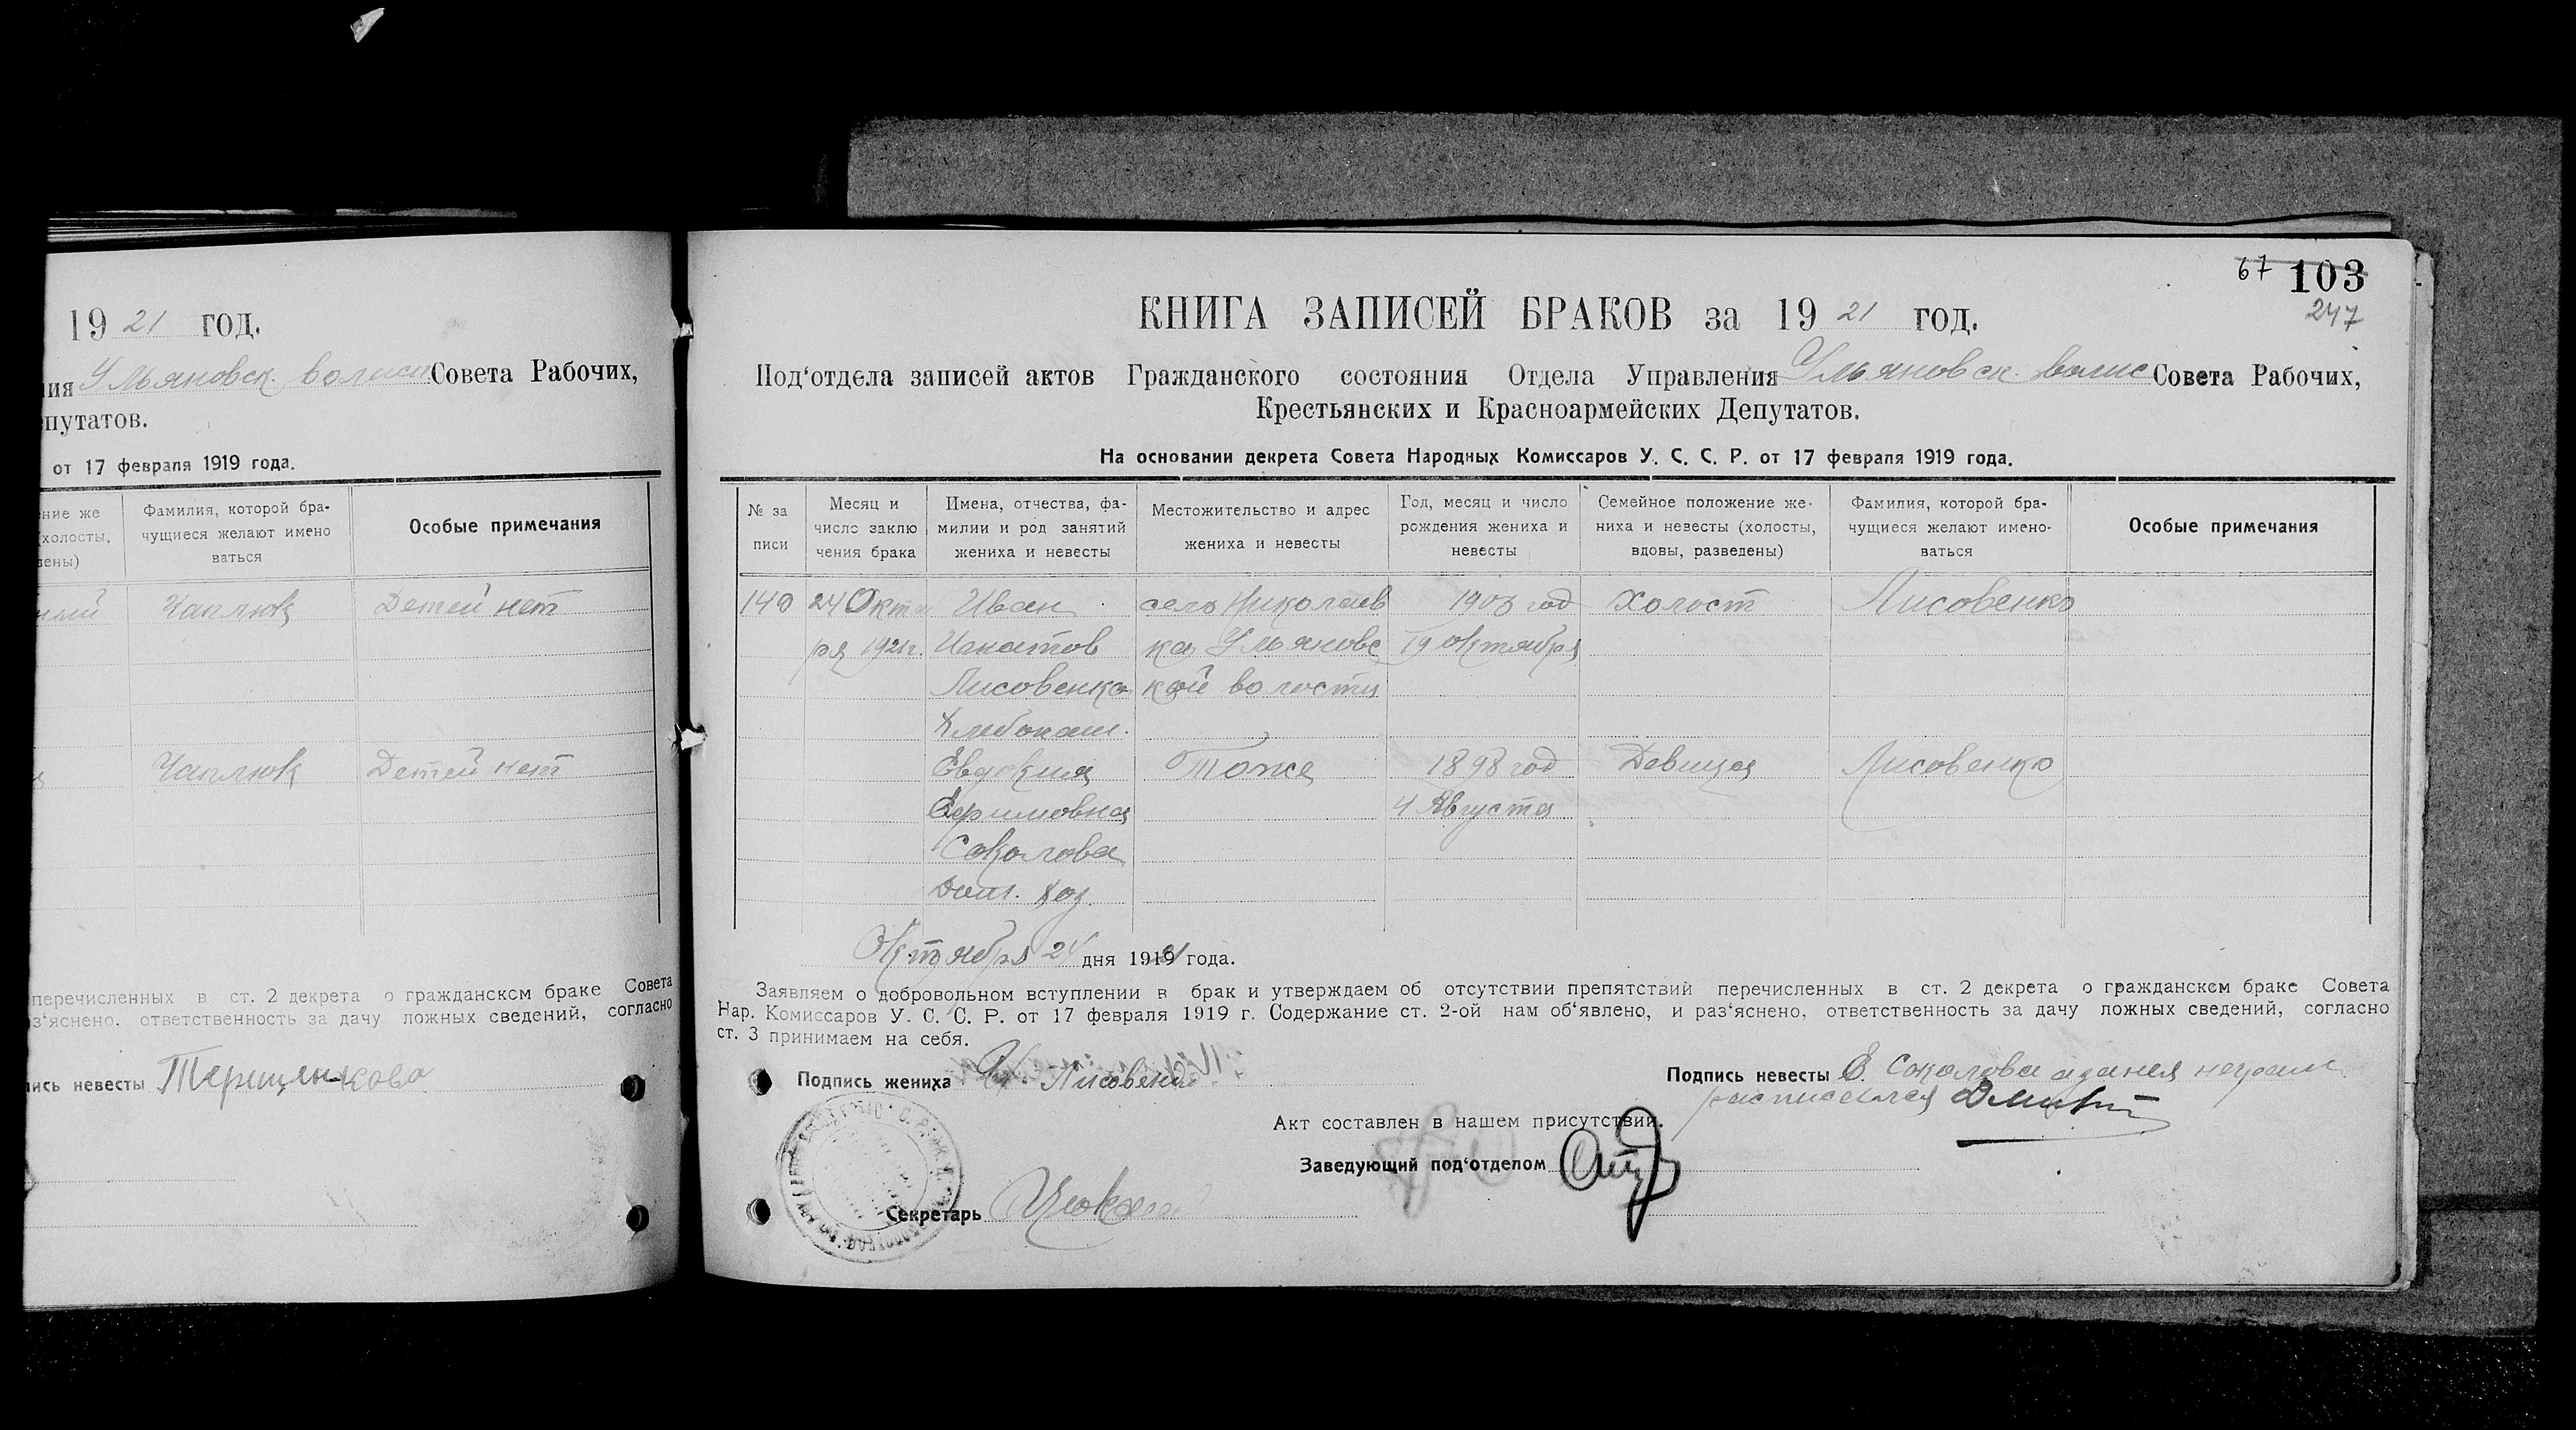 19 21 год.
ия Ульяновск. волисп Совета Рабочих,
путатов.
от 17 февраля 1919 года.
ние же
(холосты,
дены)
Фамилия, которой бра-
чущиеся желают имено
ваться
Особые примечания
Чаплюк Детей нет
Чаплюк Детей нет
перечисленных в ст. 2 декрета о гражданском браке Совета
з‘яснено. ответственность за дачу ложных сведений, согласно
ись невесты Терищенкова
67 103
247
КНИГА ЗАПИСЕЙ БРАКОВ за 19 21 год.
Под‘отдела записей актов Гражданского состояния Отдела Управления Ульяновск. волис Совета Рабочих,
Крестьянских и Красноармейских Депутатов.
На основании декрета Совета Народных Комиссаров У. С. С. Р. от 17 февраля 1919 года.
№ за
писи
Месяц и
число заклю
чения брака
Имена, отчества, фа-
милии и род занятий
жениха и невесты
Местожительство и адрес
жениха и невесты
Год, месяц и число
рождения жениха и
невесты
Семейное положение же-
ниха и невесты (холосты,
вдовы, разведены)
Фамилия, которой бра-
чущиеся желают имено-
ваться
Особые примечания
140 24 Октя Иван село Николаев год Холост Лисовенко
ря 1921г. Игнатов ка Ульяновс 19 октября
Лисовенко кой волости
Хлебопаш.
Евдокия Тоже 1898 год Девица Лисовенко
Ефимовна 4 Августа
Соколова
Дом. хоз.
Октября 24 дня 1921 года.
Заявляем о добровольном вступлении в брак и утверждаем об отсутствии препятствий перечисленных в ст. 2 декрета о гражданском браке Совета
Нар. Комиссаров У. С. С. Р. от 17 февраля 1919 г. Содержание ст. 2-ой нам об‘явлено, и раз‘яснено, ответственность за дачу ложных сведений, согласно
ст. 3 принимаем на себя.
Подпись жениха Лисовенко
Подпись невесты Е. Соколова а за нея неграм
расписался
Акт составлен в нашем присутствии.
Заведующий под‘отделом
Секретарь